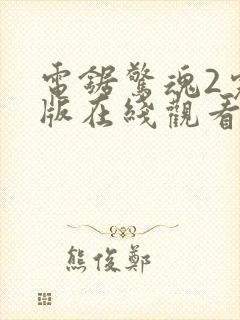 電鋸驚魂2
版在綫觀看
熊俊鄭